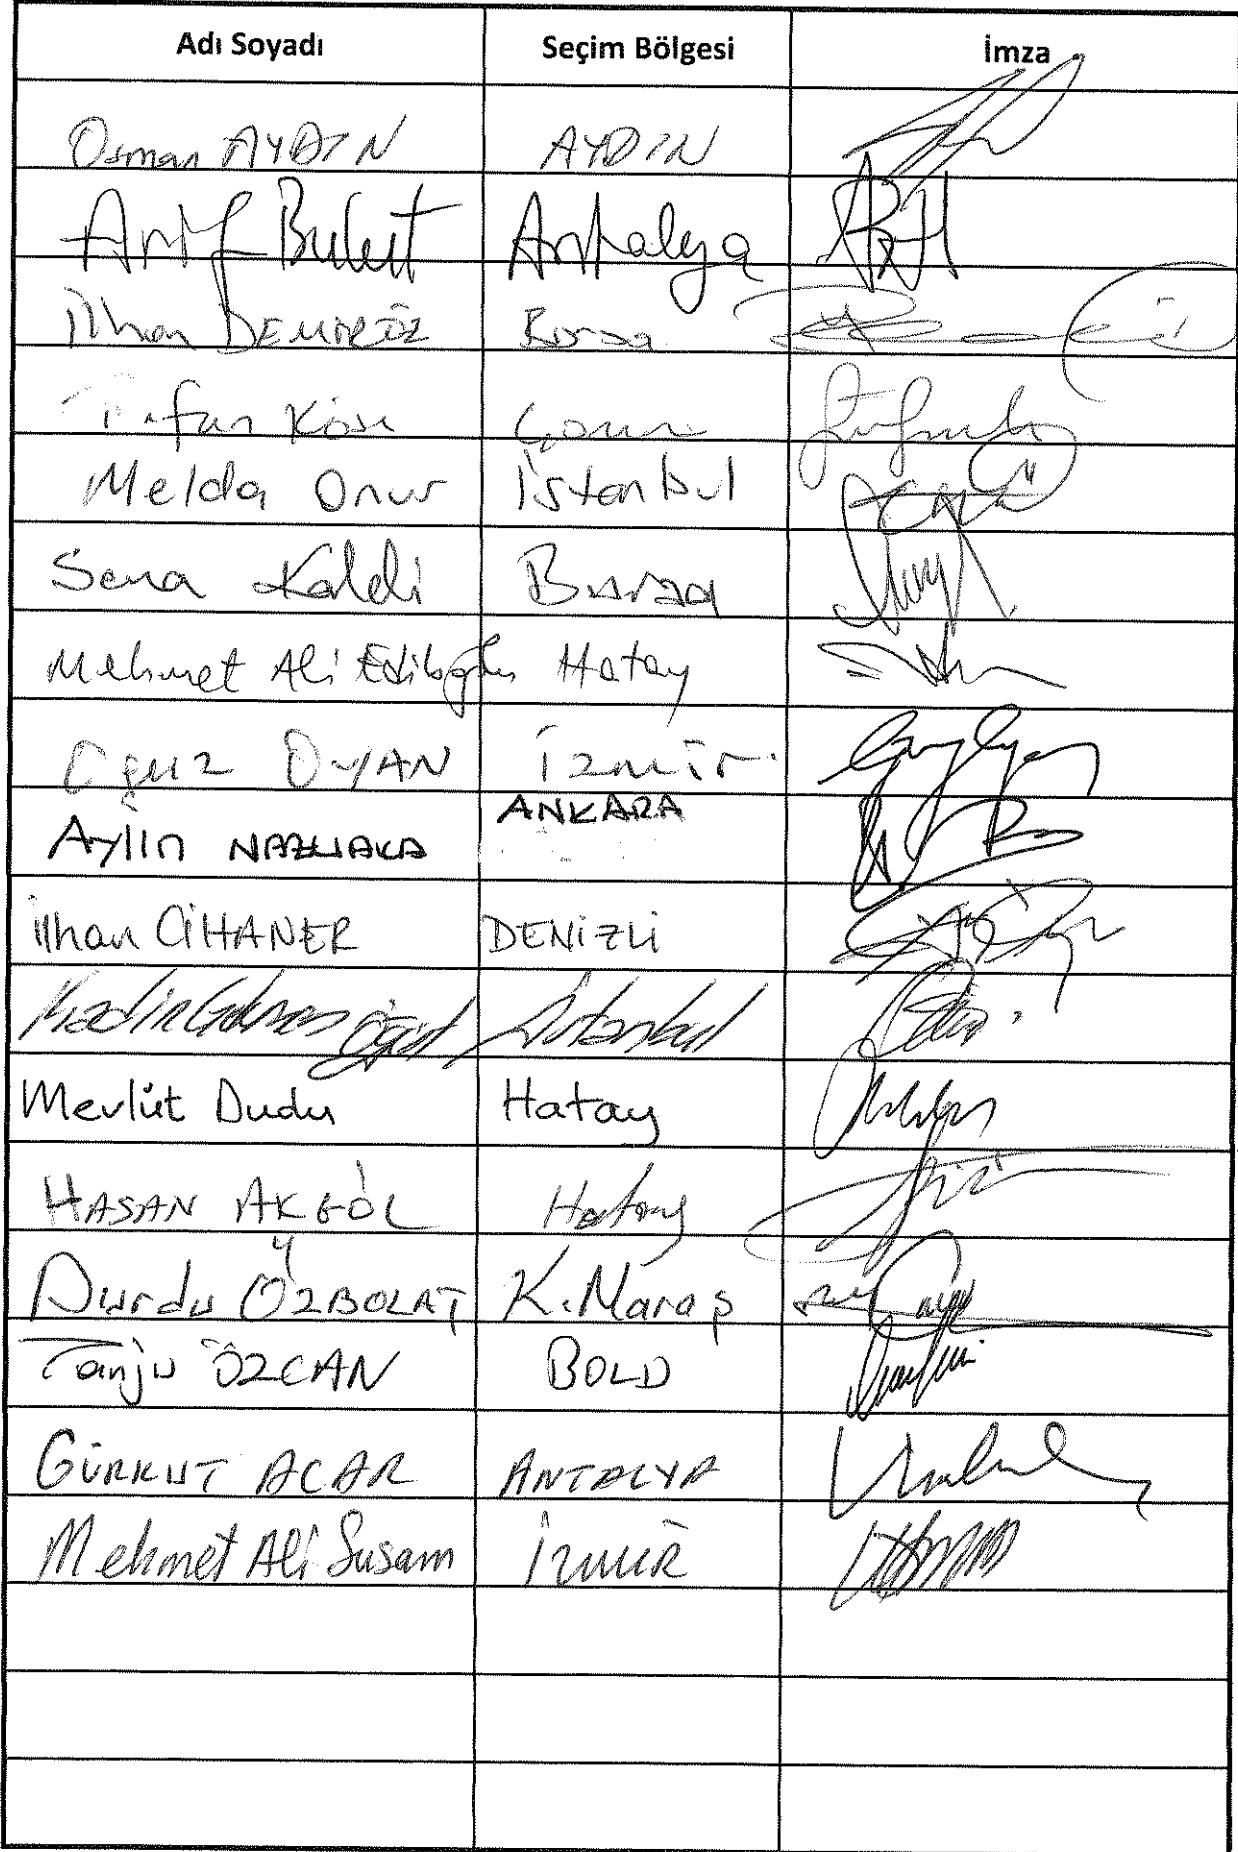 Adı Soyadı Seçim Bölgesi İmza
Osman AYDIN AYDIN
Arif Bulut Antalya
İlhan DEMİRÖZ Bursa
Köse
Melda Onur İstanbul
Sena Kaleli Bursa
Mehmet Ali Ediboğlu Hatay
Oğuz OYAN İzmir
Aylin NAZLIAKA ANKARA
İlhan CİHANER DENİZLİ
Kadir Gökmen Öğüt İstanbul
Mevlüt Dudu Hatay
HASAN AKGÖL Hatay
Durdu ÖZBOLAT K.Maraş
Tanju ÖZCAN BOLU
GÜRKUT ACAR ANTALYA
Mehmet Ali Susam İzmİR